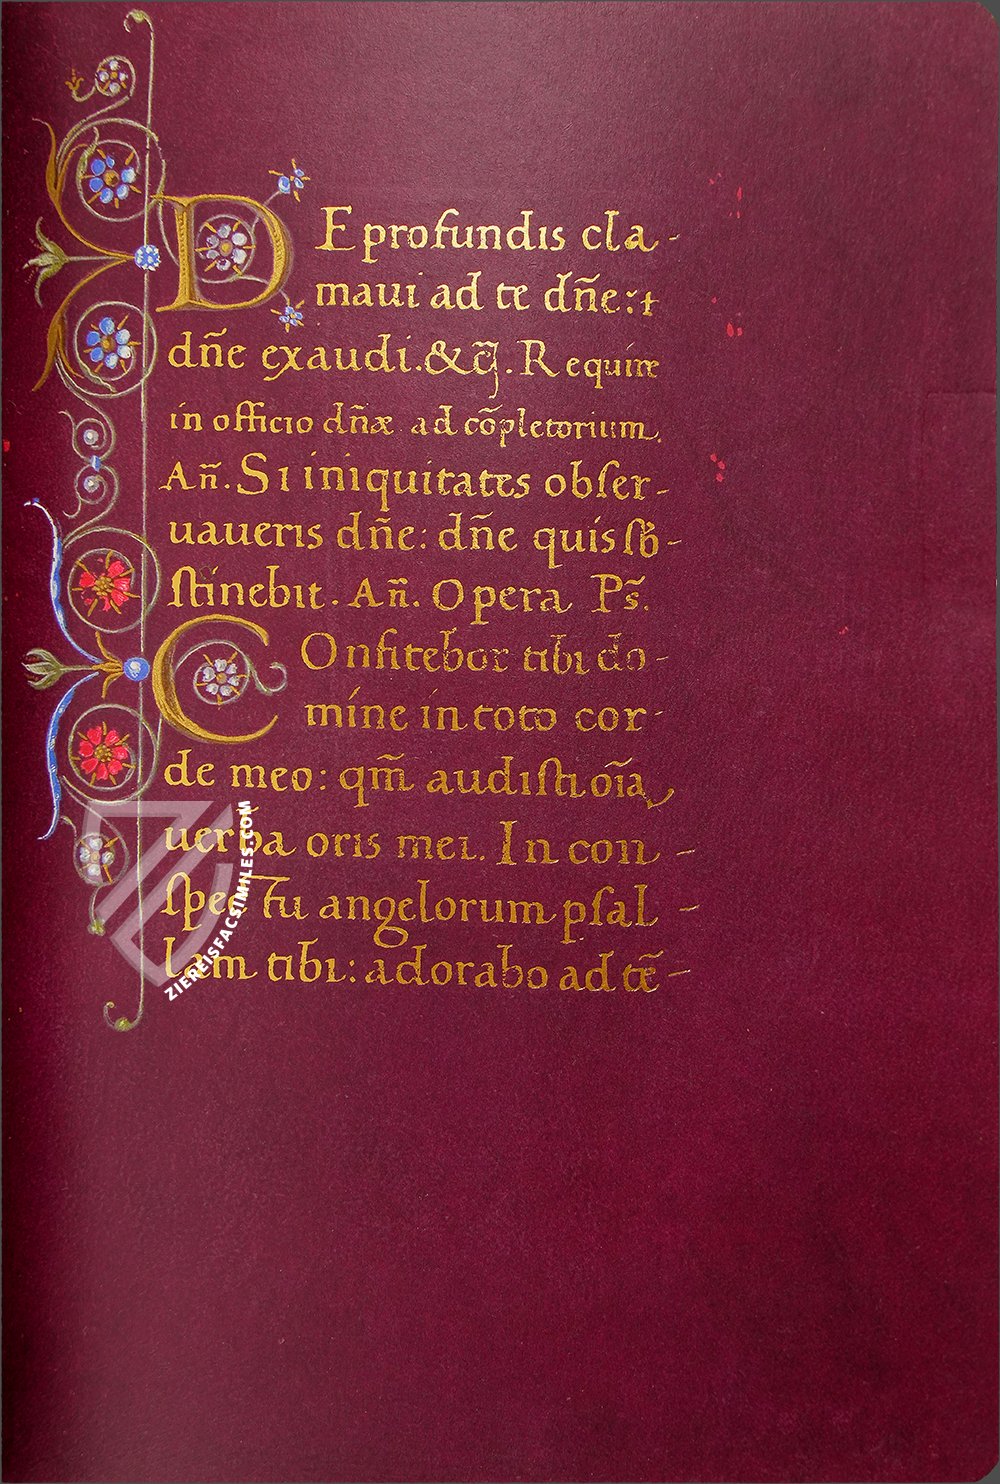 DE profundis cla-
maui ad te dñe: ⁊
dñe exaudi. &c̃. Require
in officio dñæ ad cõpletorium.
Añ. Si iniquitates obser-
uaueris dñe: dñe quis sb̃-
stinebit. Añ. Opera Ps̃.
COnfitebor tibi do-
mine in toto cor-
de meo: qm̃ audisti oĩa
uerba oris mei. In con-
spectu angelorum psal-
lam tibi: adorabo ad tẽ-
ZIEREISFACSIMILES.COM